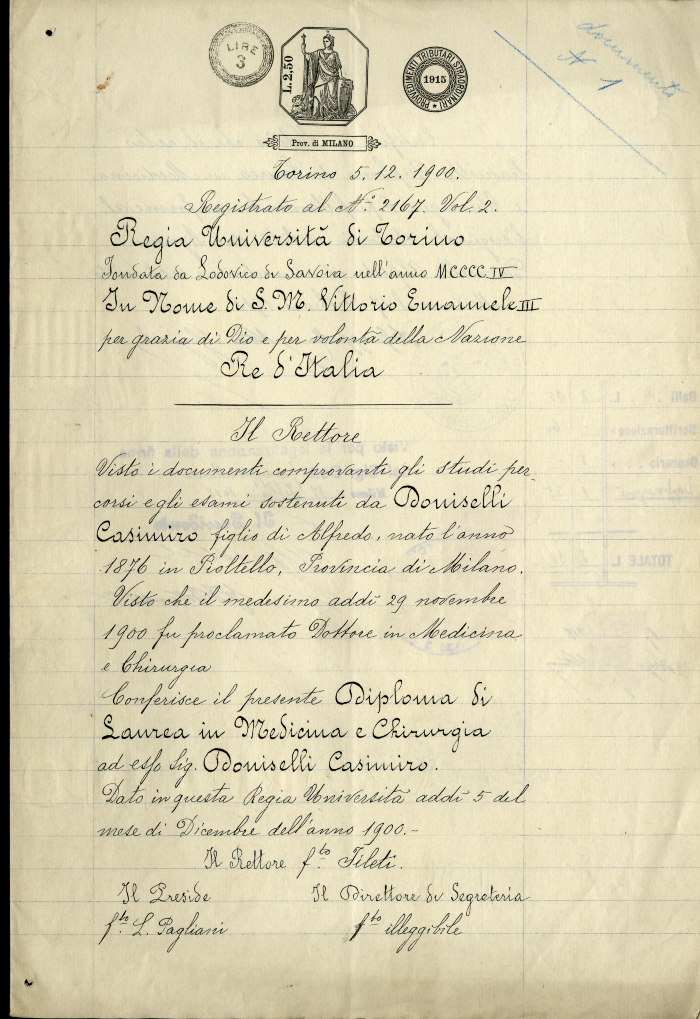 LIRE
3
L.2,50
PROVVEDIMENTI TRIBUTARI STRAORDINARI
1915
documento
N 1
Prov. di MILANO
Torino 5. 12. 1900.
Registrato al N.o 2167. Vol. 2.
Regia Università di Torino
Fondata da Lodovico di Savoia nell'anno MCCCCIV
In Nome di S. M. Vittorio Emanuele III
per grazia di Dio e per volontà della Nazione
Re d'Italia
Il Rettore
Visto i documenti comprovanti gli studi per
corsi e gli esami sostenuti da Doniselli
Casimiro figlio di Alfredo, nato l'anno
1876 in Pioltello, Provincia di Milano.
Visto che il medesimo addì 29 novembre
1900 fu proclamato Dottore in Medicina
e Chirurgia
Conferisce il presente Diploma di
Laurea in Medicina e Chirurgia
ad esso Sig. Doniselli Casimiro.
Dato in questa Regia Università addì 5 del
mese di Dicembre dell'anno 1900.-
Il Rettore f.to Fileti.
Il Preside Il Direttore di Segreteria
f.to L. Pagliani f.to illeggibile
Bolli L.
Scritturazione
Onorario
TOTALE L.